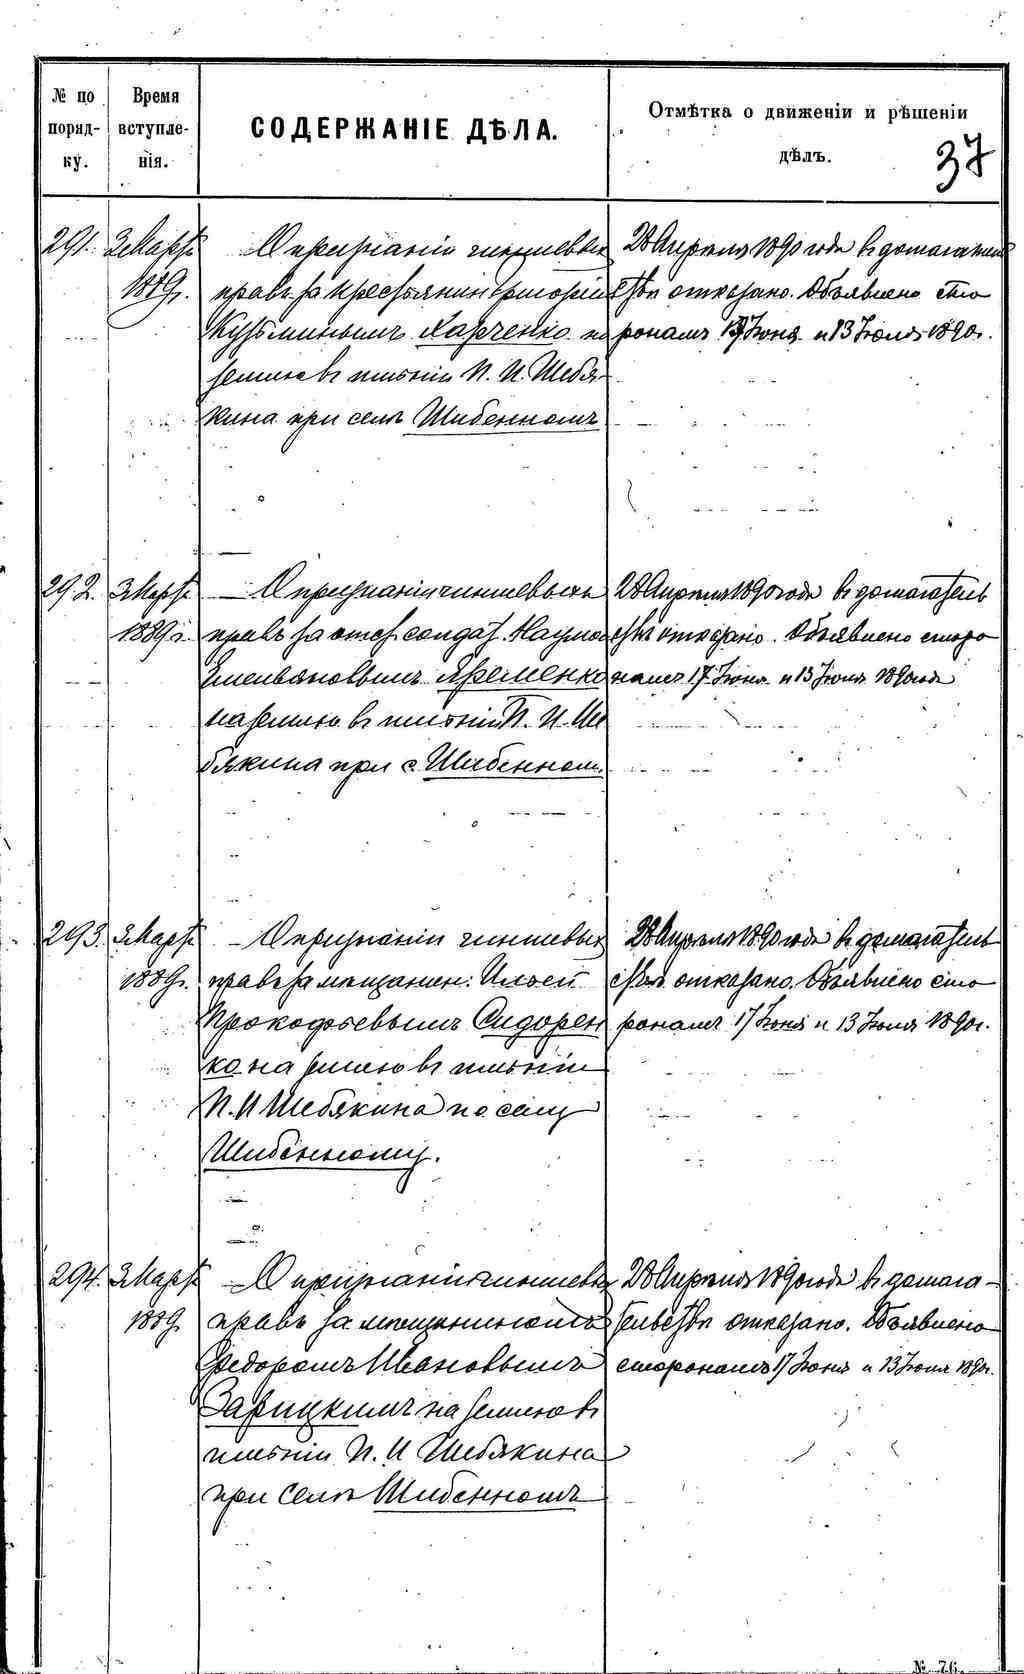 № по порядку.
Время вступленія.
СОДЕРЖАНІЕ ДѢЛА.
Отмѣтка о движеніи и рѣшеніи
дѣлъ.
37
291. 3 Марта
1889 г.
О признаніи чиншевыхъ
правъ за крестьянин. Григоріемъ
Кузьминымъ Харченко на
землю въ имѣніи П. И. Шебя-
кина при селѣ Шибенномъ
28 Апрѣля 1890 года въ домогатель
ствѣ отказано. Объявлено сто
ронамъ 17 Іюня и 13 Іюля 1890 г.
292. 3 Марта
1889 г.
— О признаніи чиншевыхъ
правъ за отст. солдат. Наумо
Емельяновымъ Яременко
на землю въ имѣніи П. И. Ше
бякина при с. Шибенном.
28 Апрѣля 1890 года въ домогатель
ствѣ отказано. Объявлено сторо
намъ 17 Іюня и 13 Іюля 1890 года
293. 3 Марта
1889 г.
— О признаніи чиншевыхъ
правъ за мещанин: Ильей
Прокофьевымъ Сидорен
ко на землю въ имѣніи
П. И Шебякина по селу
Шибенному.
28 Апрѣля 1890 года въ домогатель
ствѣ отказано. Объявлено сто
ронамъ 17 Іюня и 13 Іюля 1890 г.
294. 3 Марта
1889 г.
— О признаніи чиншевых
правъ за мещанином
Федоромъ Ивановымъ
Зарицкимъ на землю въ
имѣніи П. И Шебякина
при селѣ Шибенномъ
28 Апрѣля 1890 года въ домога-
тельствѣ отказано. Объявлено
сторонамъ 17 Іюня и 13 Іюля 1890 г.
№ 76.